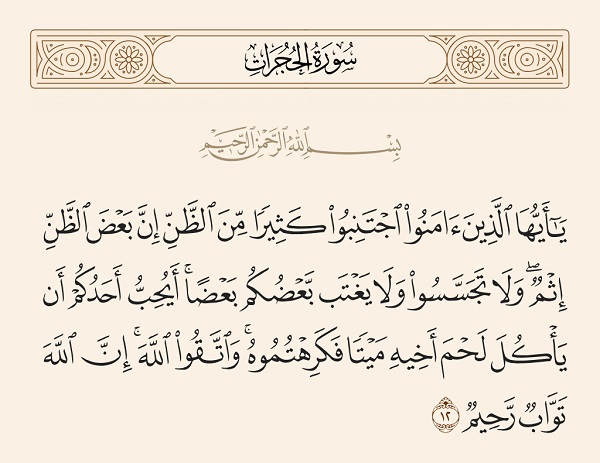 سُورَةُ الحُجُرَاتِ
بِسْمِ ٱللَّهِ ٱلرَّحْمَٰنِ ٱلرَّحِيمِ
يَٰٓأَيُّهَا ٱلَّذِينَ ءَامَنُوا۟ ٱجْتَنِبُوا۟ كَثِيرًا مِّنَ ٱلظَّنِّ إِنَّ بَعْضَ ٱلظَّنِّ
إِثْمٌ ۖ وَلَا تَجَسَّسُوا۟ وَلَا يَغْتَب بَّعْضُكُم بَعْضًا ۚ أَيُحِبُّ أَحَدُكُمْ أَن
يَأْكُلَ لَحْمَ أَخِيهِ مَيْتًا فَكَرِهْتُمُوهُ ۚ وَٱتَّقُوا۟ ٱللَّهَ ۚ إِنَّ ٱللَّهَ
تَوَّابٌ رَّحِيمٌ ١٢